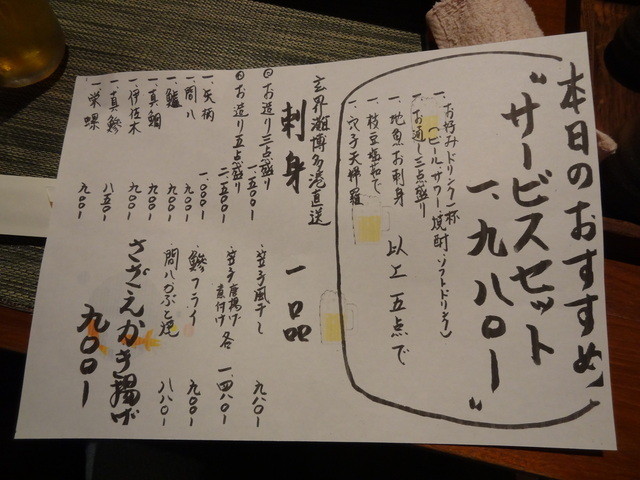 本日のおすすめ
"サービスセット
一、九八〇ー"
一、お好みドリンク一杯
(ビール・サワー・焼酎・ソフトドリンク)
一、お通し三点盛り
一、地魚お刺身
一、枝豆塩茹で
一、穴子天婦羅
以上五点で
玄界灘博多港直送
刺身
②お造り三点盛り 一、五〇〇ー
②お造り五点盛り 二、五〇〇ー
一、矢柄 一、〇〇〇ー
一、間八 九〇〇ー
一、鱸 九〇〇ー
一、真鯛 九〇〇ー
一、伊佐木 九〇〇ー
一、真鯵 八五〇ー
一、栄螺 九〇〇ー
一品
笠子風干し 九八〇ー
笠子唐揚げ 煮付け 各 一、四八〇ー
鯵フライ 九〇〇ー
間八かぶと焼 八八〇ー
さざえかき揚げ
九〇〇ー